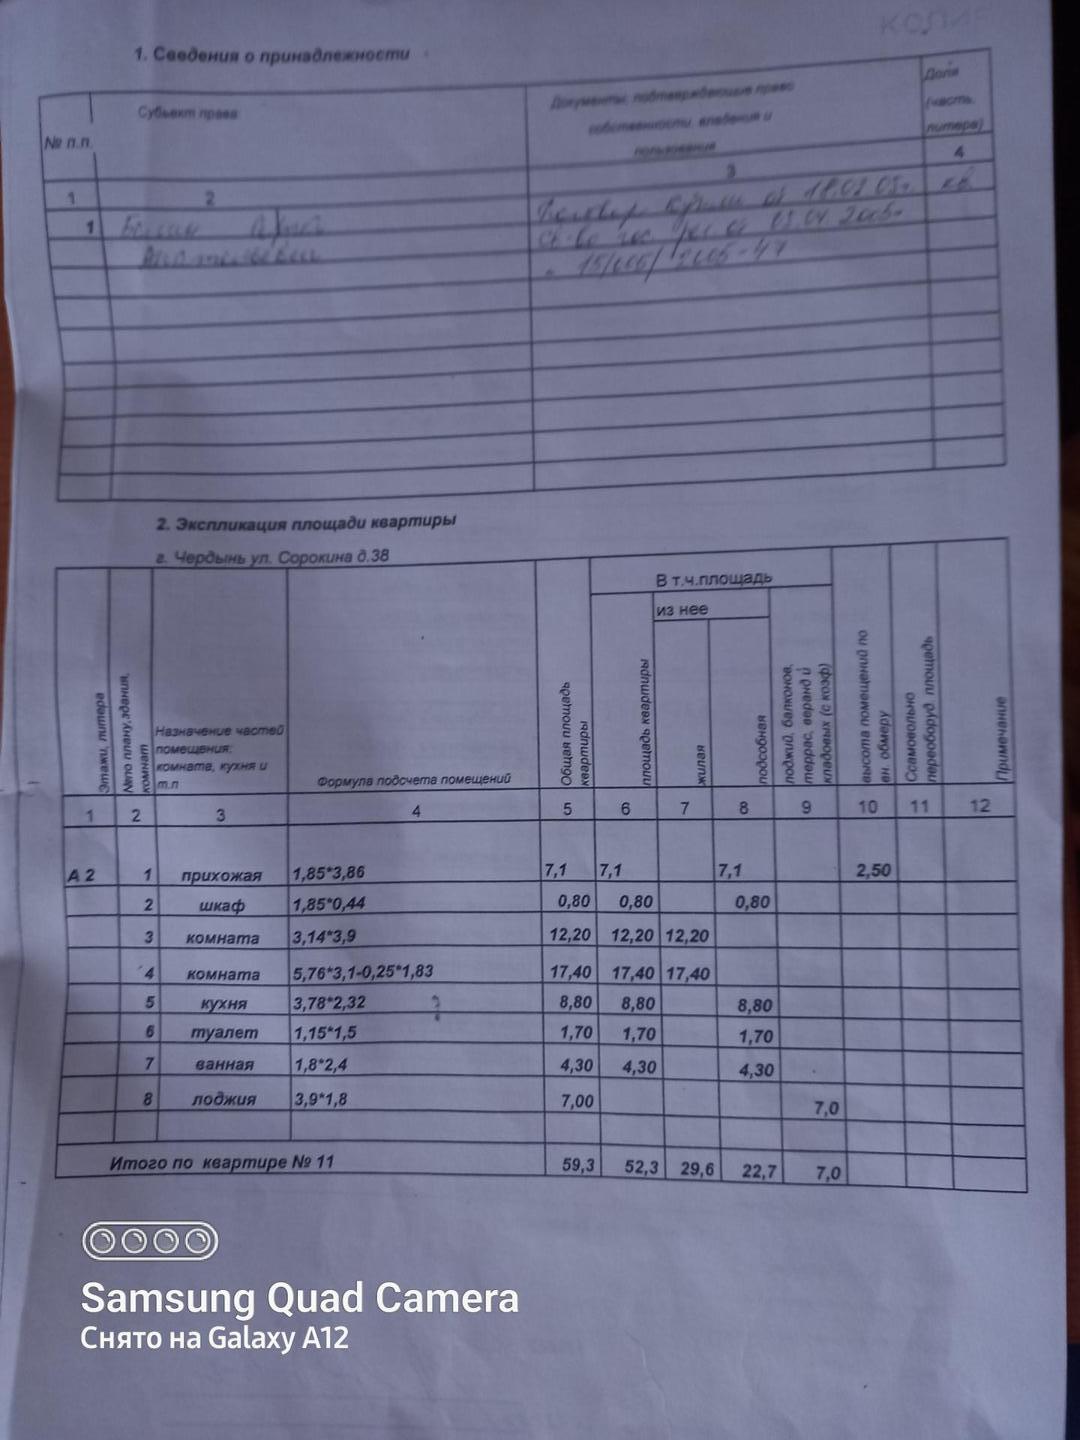 КОПИЯ
1. Сведения о принадлежности
№ п.п. Субъект права Документы, подтверждающие право собственности, владения и пользования Доля (часть, литера)
1 2 3 4
1 от 18.02.05г. кв
от 05.04.2005г
15/005/2005-47
2. Экспликация площади квартиры
г. Чердынь ул. Сорокина д.38
Этажи, литера №по плану,здания, комнат Назначение частей помещения: комната, кухня и т.п Формула подсчета помещений Общая площадь квартиры В т.ч.площадь
из нее
площадь квартиры жилая подсобная лоджий, балконов, террас, веранд и кладовых (с коэф) высота помещений по вн. обмеру Ссамовольно переоборуд. площадь Примечание
1 2 3 4 5 6 7 8 9 10 11 12
А 2 1 прихожая 1,85*3,86 7,1 7,1 7,1 2,50
2 шкаф 1,85*0,44 0,80 0,80 0,80
3 комната 3,14*3,9 12,20 12,20 12,20
4 комната 5,76*3,1-0,25*1,83 17,40 17,40 17,40
5 кухня 3,78*2,32 8,80 8,80 8,80
6 туалет 1,15*1,5 1,70 1,70 1,70
7 ванная 1,8*2,4 4,30 4,30 4,30
8 лоджия 3,9*1,8 7,00 7,0
Итого по квартире № 11 59,3 52,3 29,6 22,7 7,0
Samsung Quad Camera
Снято на Galaxy A12